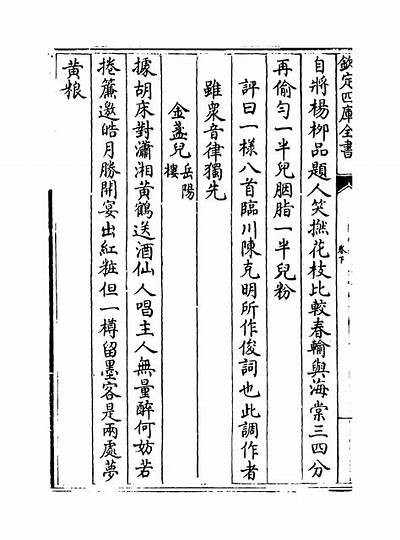 欽定四庫全書
卷下
自將楊栁品題人笑撚花枝比較春輸與海棠三四分
再偷勻一半兒胭脂一半兒粉
評曰一様八首臨川陳克明所作俊詞也此調作者
雖衆音律獨先
金盞兒 岳陽樓
據胡床對瀟湘黄鶴送酒仙人唱主人無量醉何妨若
捲簾邀皓月勝開宴出紅粧但一樽留墨客是兩處夢
黄粮